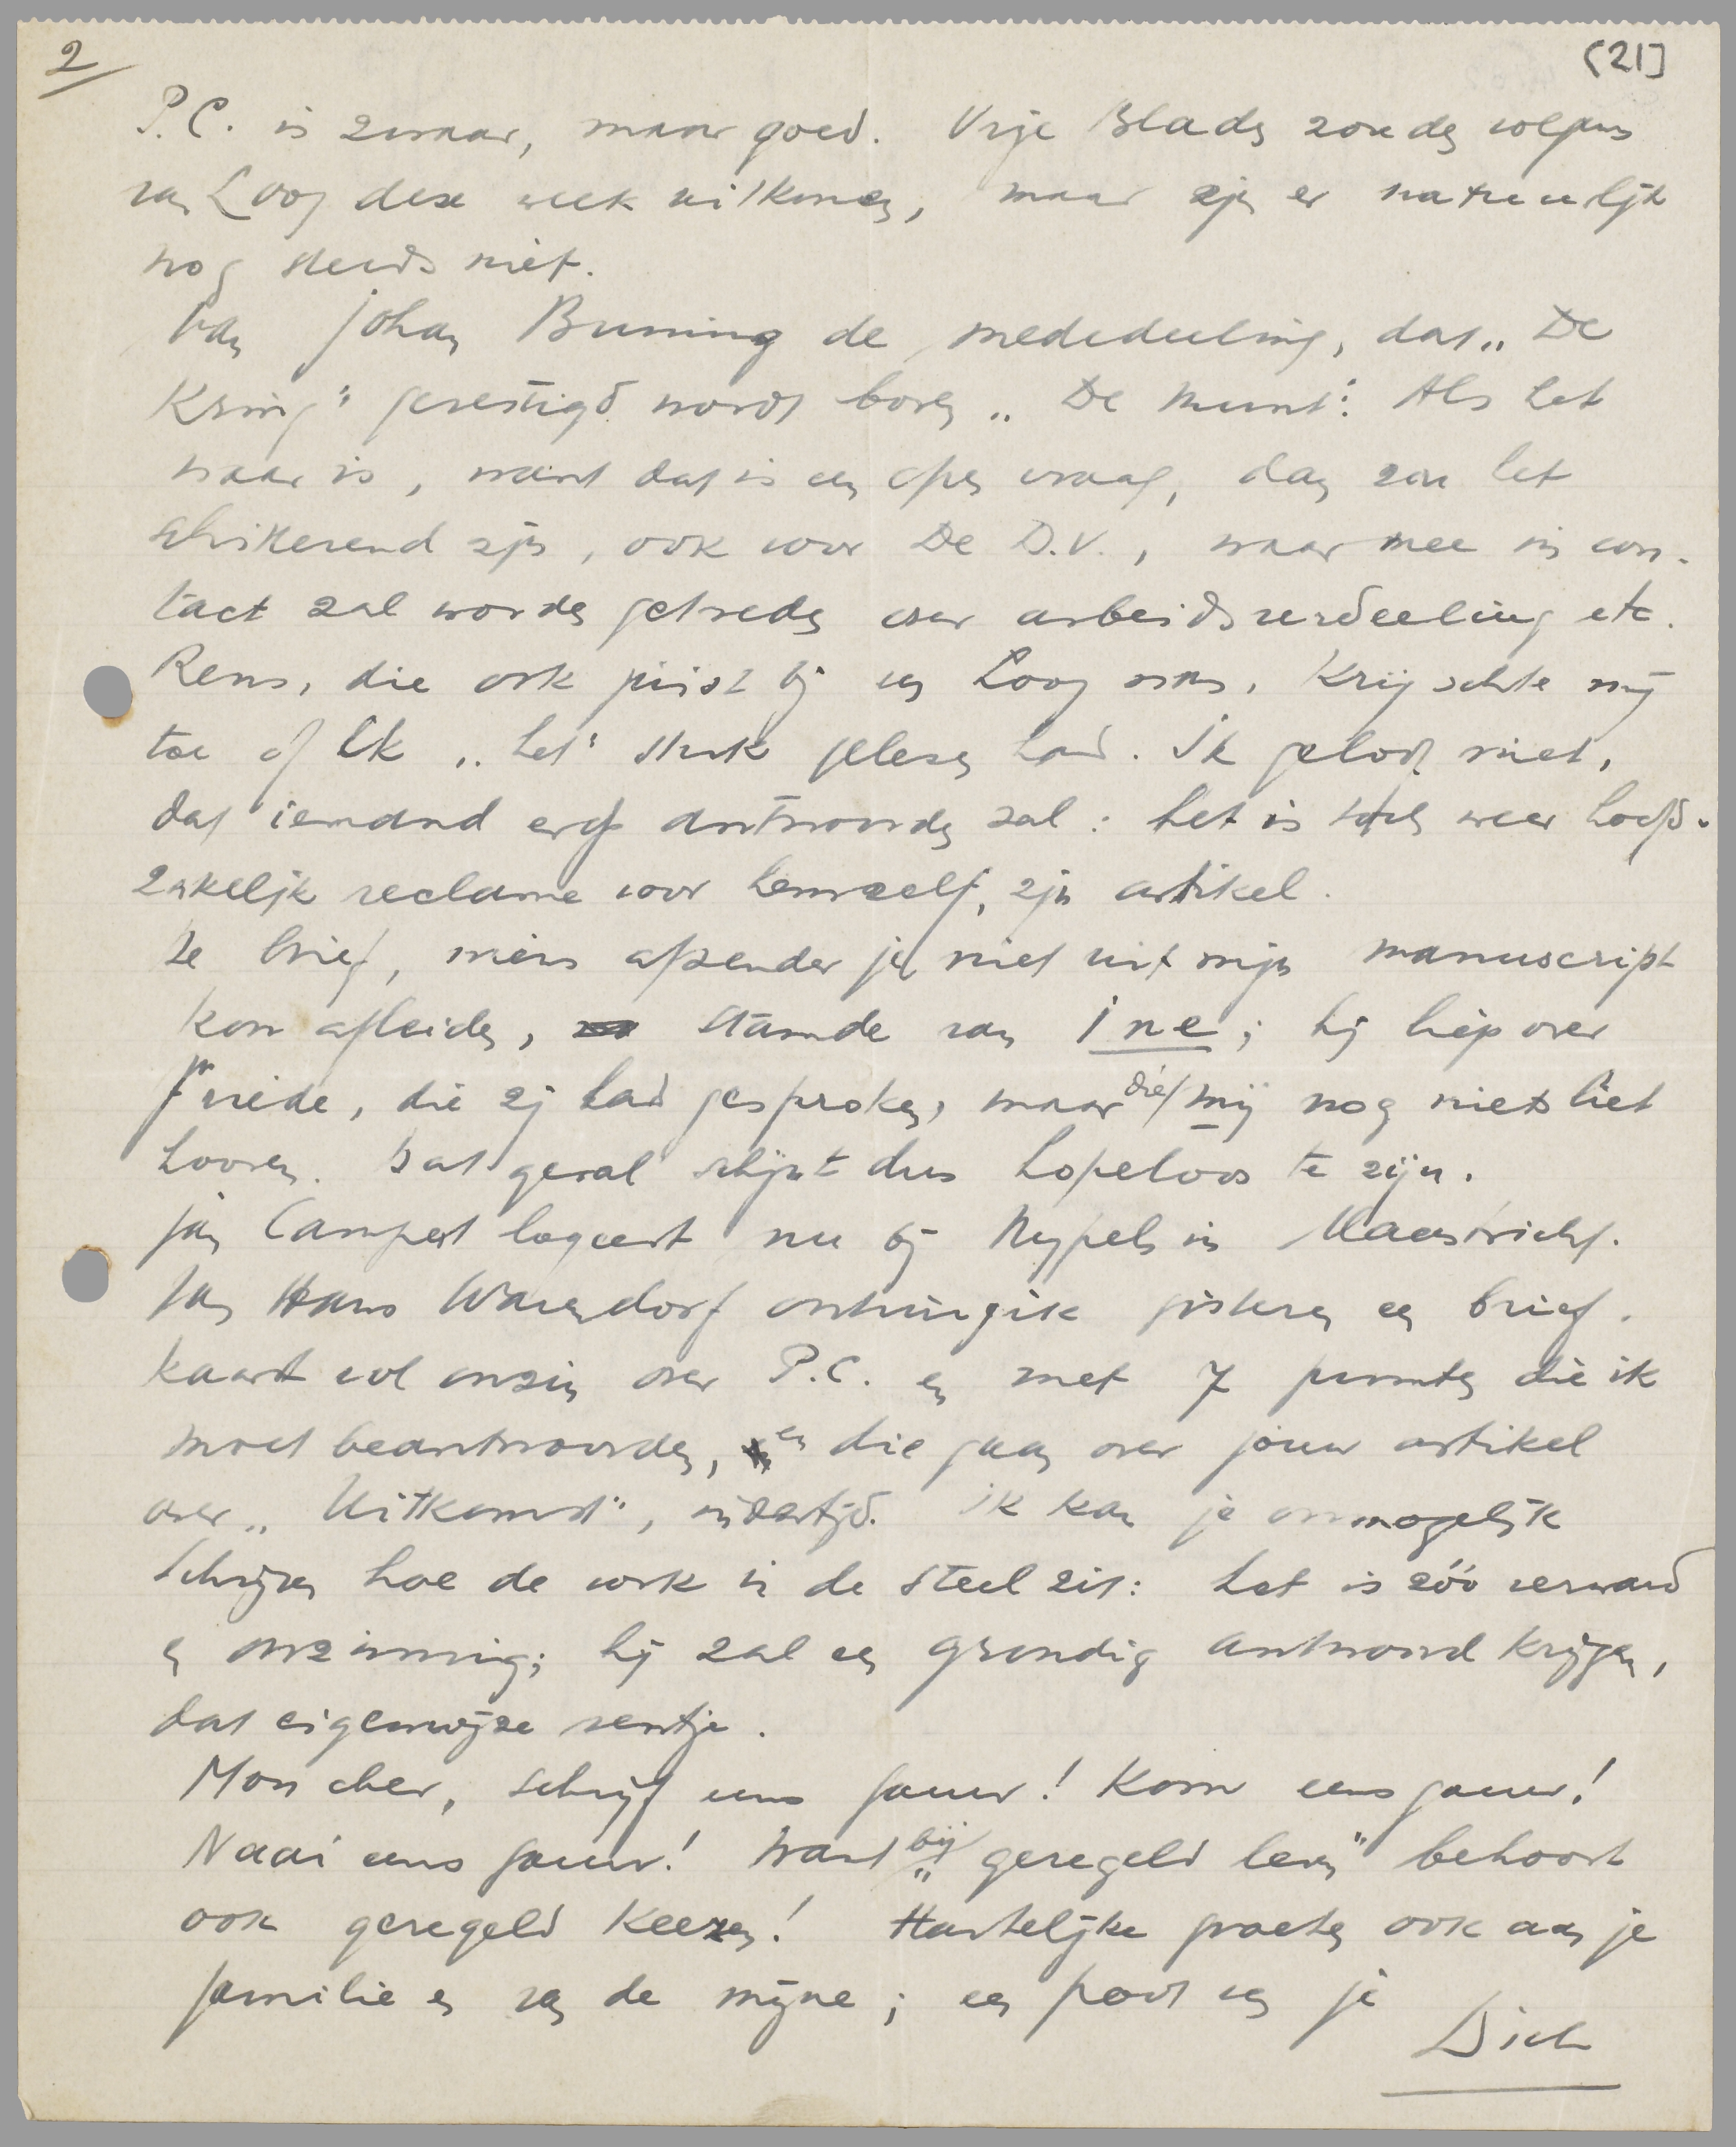 2
(21]
P.C. is zwaar, maar goed. Vrije Bladen zouden volgens
van Looy deze week uitkomen, maar zijn er natuurlijk
nog steeds niet.
Van Johan Buning de mededeeling, dat „De
Kring" gevestigd wordt boven „De Munt". Als het
waar is, want dat is een open vraag, dan zou het
schitterend zijn, ook voor De D.V., waarmee in con-
tact zal worden getreden over arbeidsverdeeling etc.
Rens, die ook juist bij van Looy was, krijschte mij
toe of ik „het" stuk gelezen had. Ik geloof niet,
dat iemand erop antwoorden zal: het is toch weer hoofd-
zakelijk reclame voor hemzelf, zijn artikel.
De brief, wiens afzender je niet uit mijn manuscript
kon afleiden, stamde van Ine; hij liep over
Friede, die zij had gesproken, maar die mij nog niets liet
hooren. Dat geval schijnt dus hopeloos te zijn.
Jan Campert logeert nu bij Nypels in Maastricht.
Van Hans Warendorf ontving ik gisteren een brief-
kaart vol onzin over P.C. en met 7 punten die ik
moet beantwoorden, en die gaan over jouw artikel
over „Uitkomst", indertijd. Ik kan je onmogelijk
schrijven hoe de vork in de steel zit: het is zóó verward
en onzinnig; hij zal een grondig antwoord krijgen,
dat eigenwijze ventje.
Mon cher, schrijf eens gauw! Kom eens gauw!
Naai eens gauw! Want bij „geregeld leven" behoort
ook geregeld keezen! Hartelijke groeten ook aan je
familie en van de mijne; een poot van je
Dick